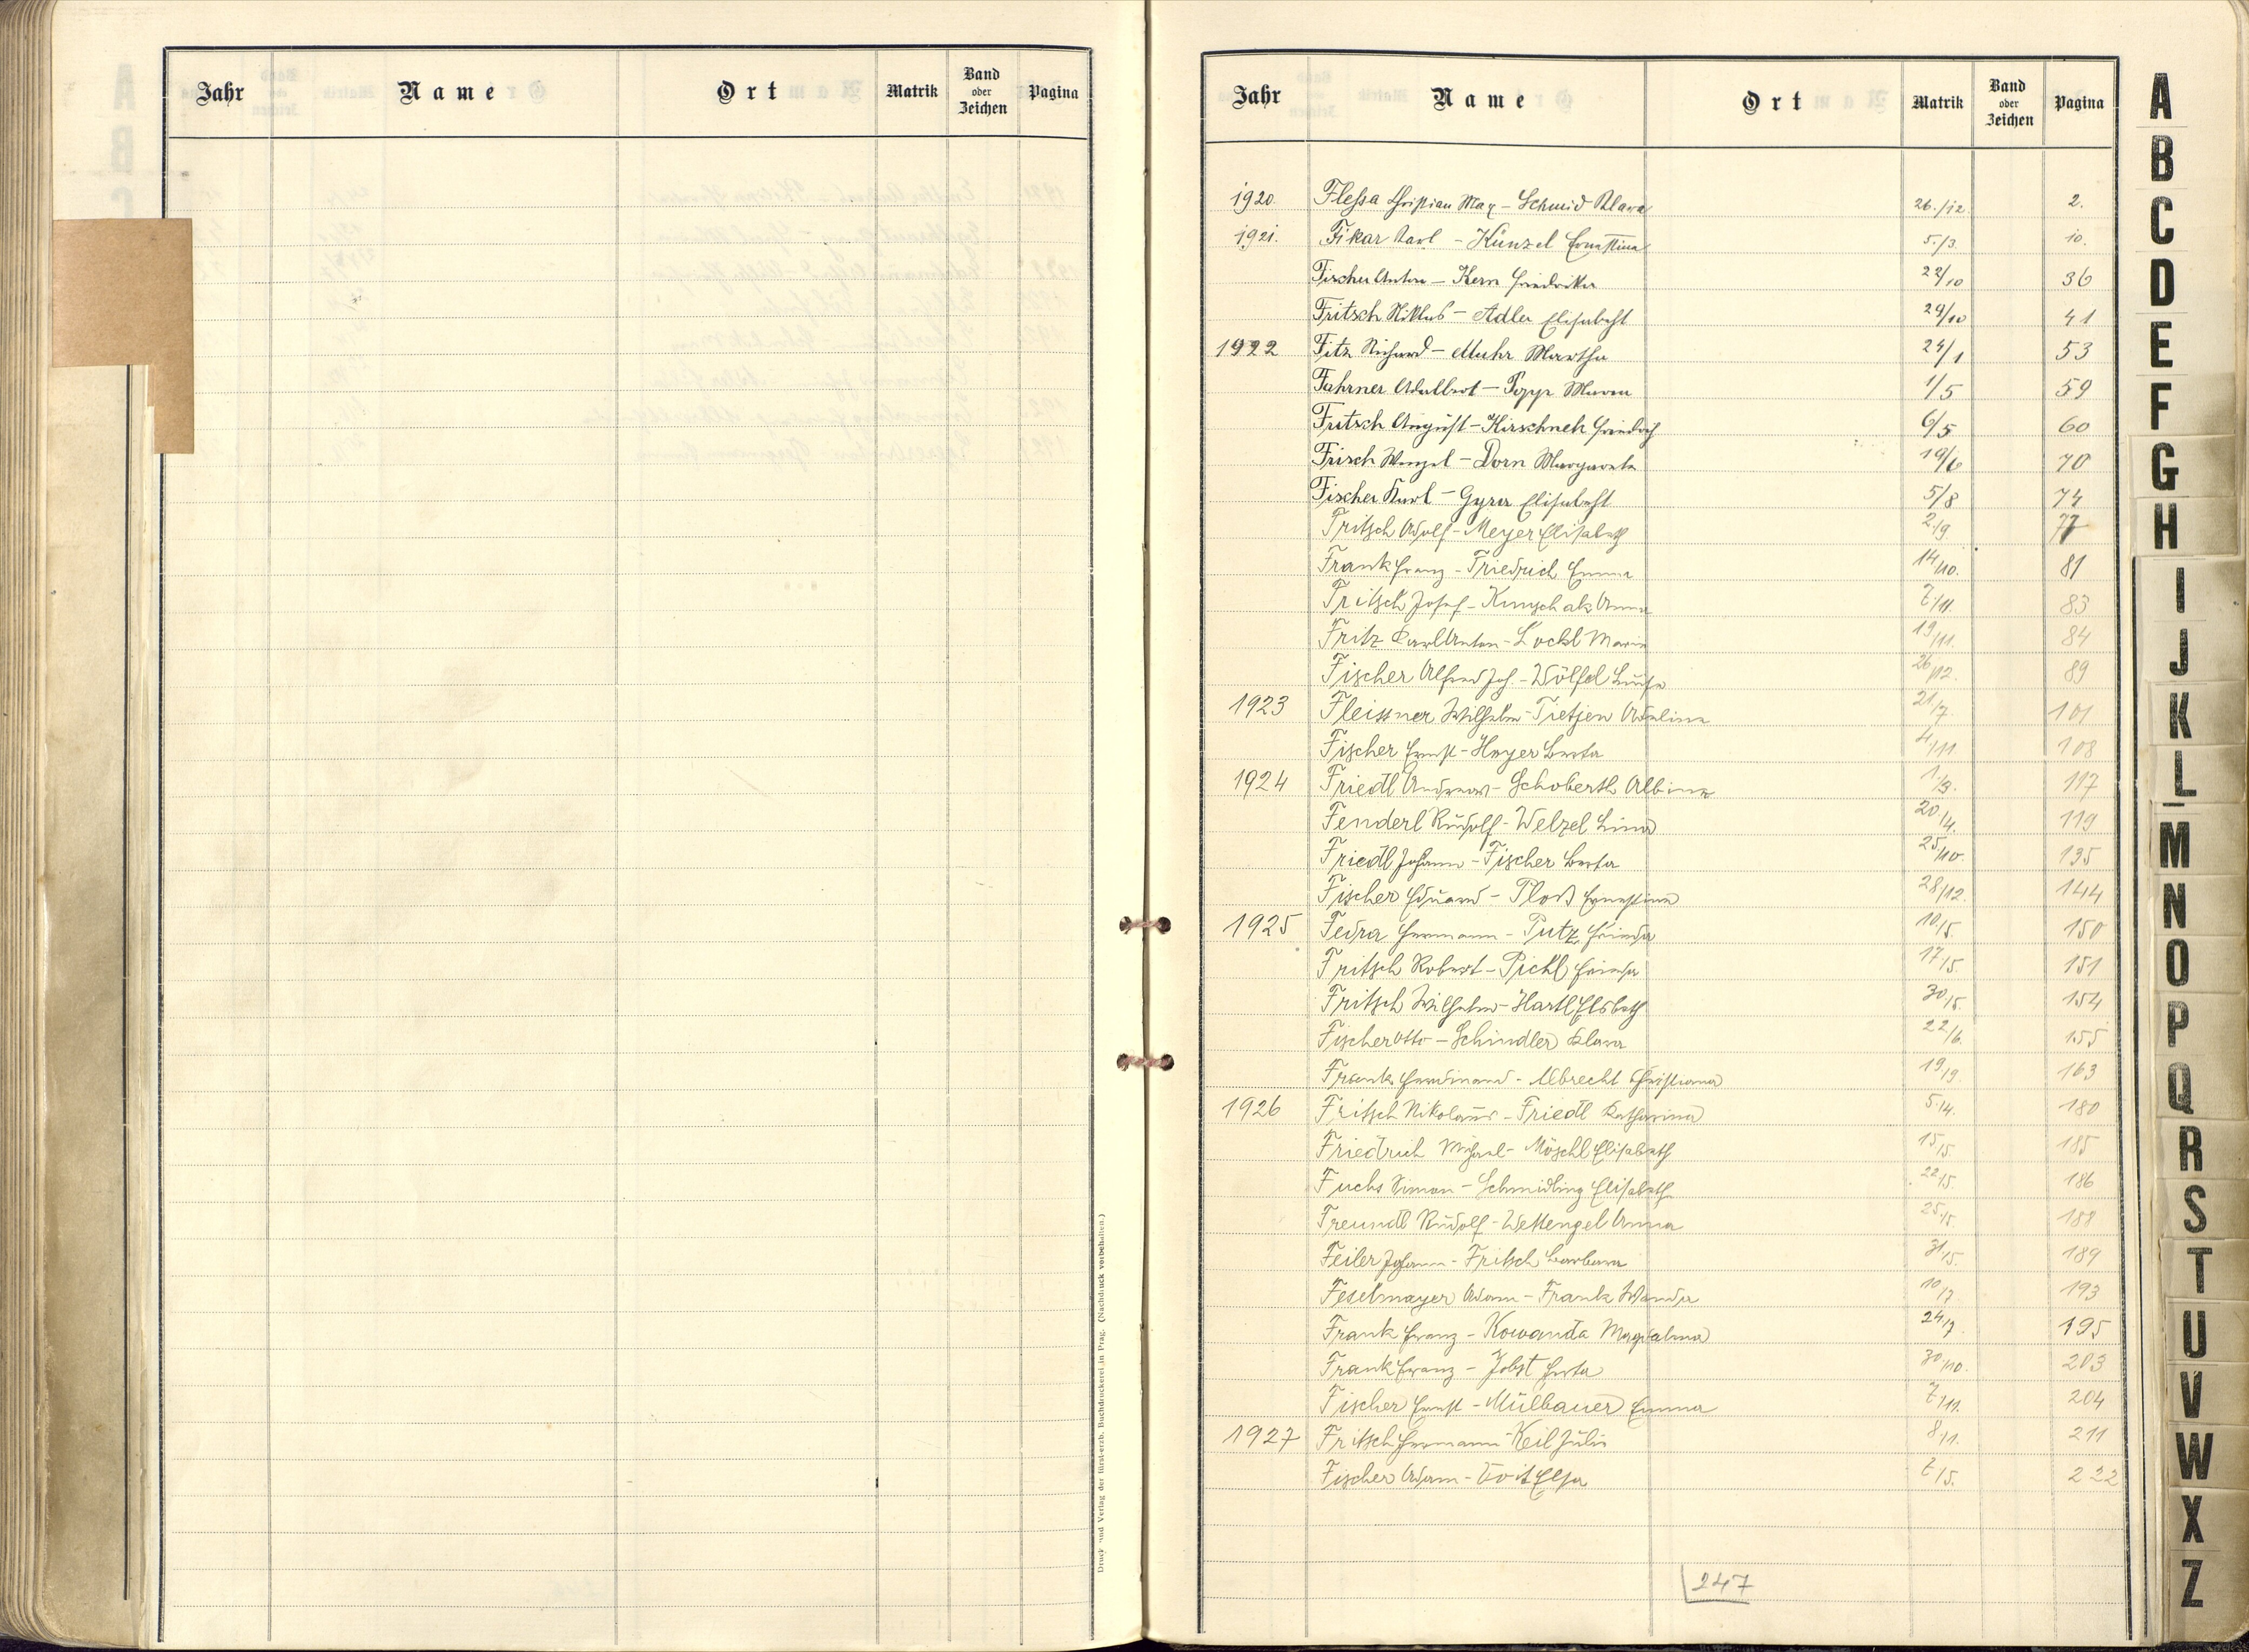 Jahr Name Ort Matrik Band oder Zeichen Pagina
Druck und Verlag der fürst-erzb. Buchdruckerei in Prag. (Nachdruck vorbehalten.)
Jahr Name Ort Matrik Band oder Zeichen Pagina
1920. Flessa Christian Max - Schmid Klara 26./12. 2.
1921. Fikar Karl - Künzel Ernestina 5./3. 10.
Fischer Anton - Kern Friedrika 22/10 36
Fritsch Niklas - Adler Elisabeth 29/10 41
1922 Fitz Richard - Muhr Martha 24/1 53
Fahrner Adalbert - Popp Maria 1/5 59
Fritsch August - Kirschnek 6/5 60
Frisch Wenzel - Dorn Margareta 19/6 70
Fischer Karl - Gyra Elisabeth 5/8 74
Fritsch Adolf - Meyer Elisabeth 2./9. 77
Frank Franz - Friedrich Emma 14/10. 81
Fritsch Josef - Anna 7./11. 83
Fritz Karl Anton - Lockl Maria 19/11. 84
Fischer Alfred Joh. - Wölfel Luise 26/12. 89
1923 Fleissner Wilhelm - Tietjen Adelina 21/7. 101
Fischer Ernst - Hoyer Berta 4./11 108
1924 Friedl Andreas - Schoberth Albina 1./3. 117
Fenderl Rudolf - Welzel Lina 20/4. 119
Friedl Johann - Fischer Berta 25/10. 135
Fischer Eduard - Ploß Ernestina 28/12. 144
1925 Fedra Hermann - Putz Frieda 10/5. 150
Fritsch Robert - Pichl Frieda 17/5. 151
Fritsch Wilhelm - Hartl Elsbeth 30/5. 154
Fischer Otto - Schindler Klara 22/6. 155
Frank Ferdinand - Albrecht Christiana 19/9. 163
1926 Fritsch Nikolaus - Friedl Katharina 5./4. 180
Friedrich Michael - Möschl Elisabeth 15/5 185
Fuchs Simon - Schmidling Elisabeth 22/5. 186
Freundl Rudolf - Wettengel Anna 25/5. 188
Feiler Johann - Fritsch Barbara 31/5. 189
Feselmayer Adam - Frank Wanda 10/7 193
Frank Franz - Kowanda Magdalena 24/7 195
Frank Franz - Jobst Herta 30/10. 203
Fischer Ernst - Mülbauer Emma 7/11. 204
1927 Fritsch Hermann - Keil Julie 8/1. 211
Fischer Adam - Voit Elsa 7/5. 222
247
A
B
C
D
E
F
G
H
I
J
K
L
M
N
O
P
Q
R
S
T
U
V
W
X
Z